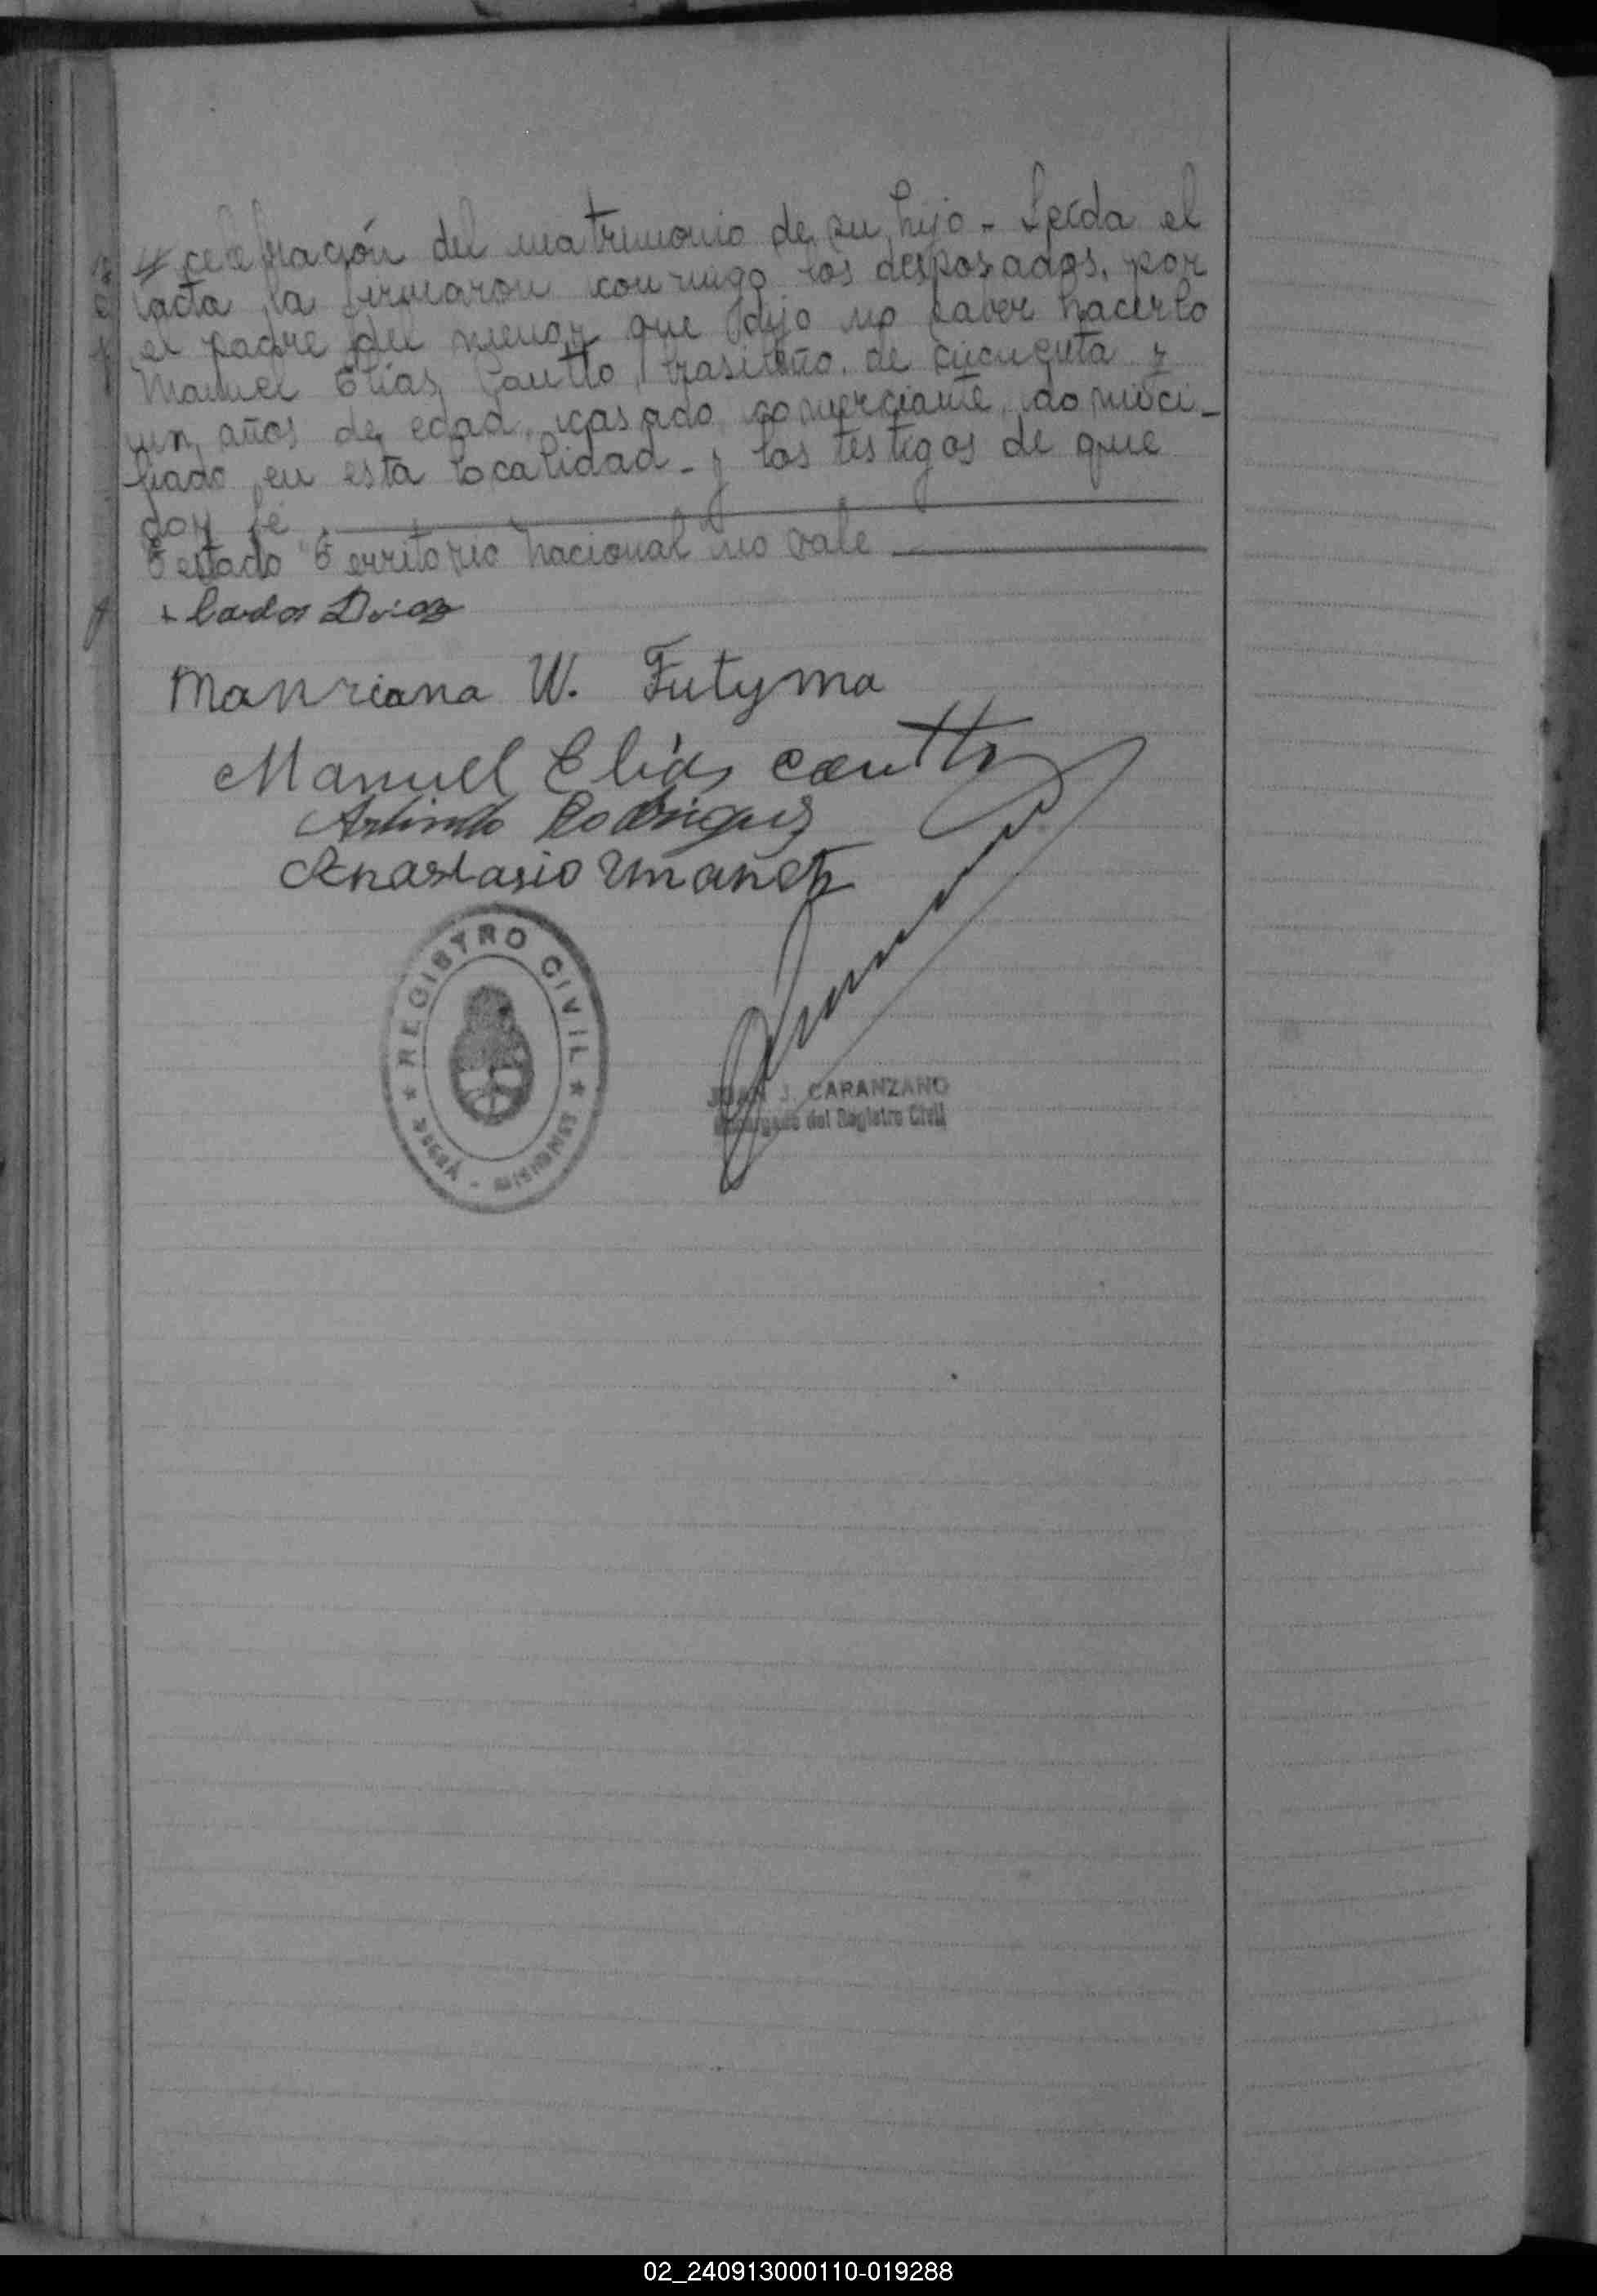 celebración del matrimonio de su hijo - Leída el
acta la firmaron conmigo los desposados, por
el padre del menor que dijo no saber hacerlo
Manuel Elías Cautto, brasileño, de cincuenta y
un años de edad, casado, comerciante, domici-
liado en esta localidad - y los testigos de que
doy fé
Testado "Territorio Nacional" no vale
Carlos Diaz
Manriana W. Futyma
Manuel Elías Cautto
Arlindo Rodriguez
Anastasio
REGISTRO CIVIL
MISIONES
JUAN J. CARANZANO
Encargado del Registro Civil
02_240913000110-019288